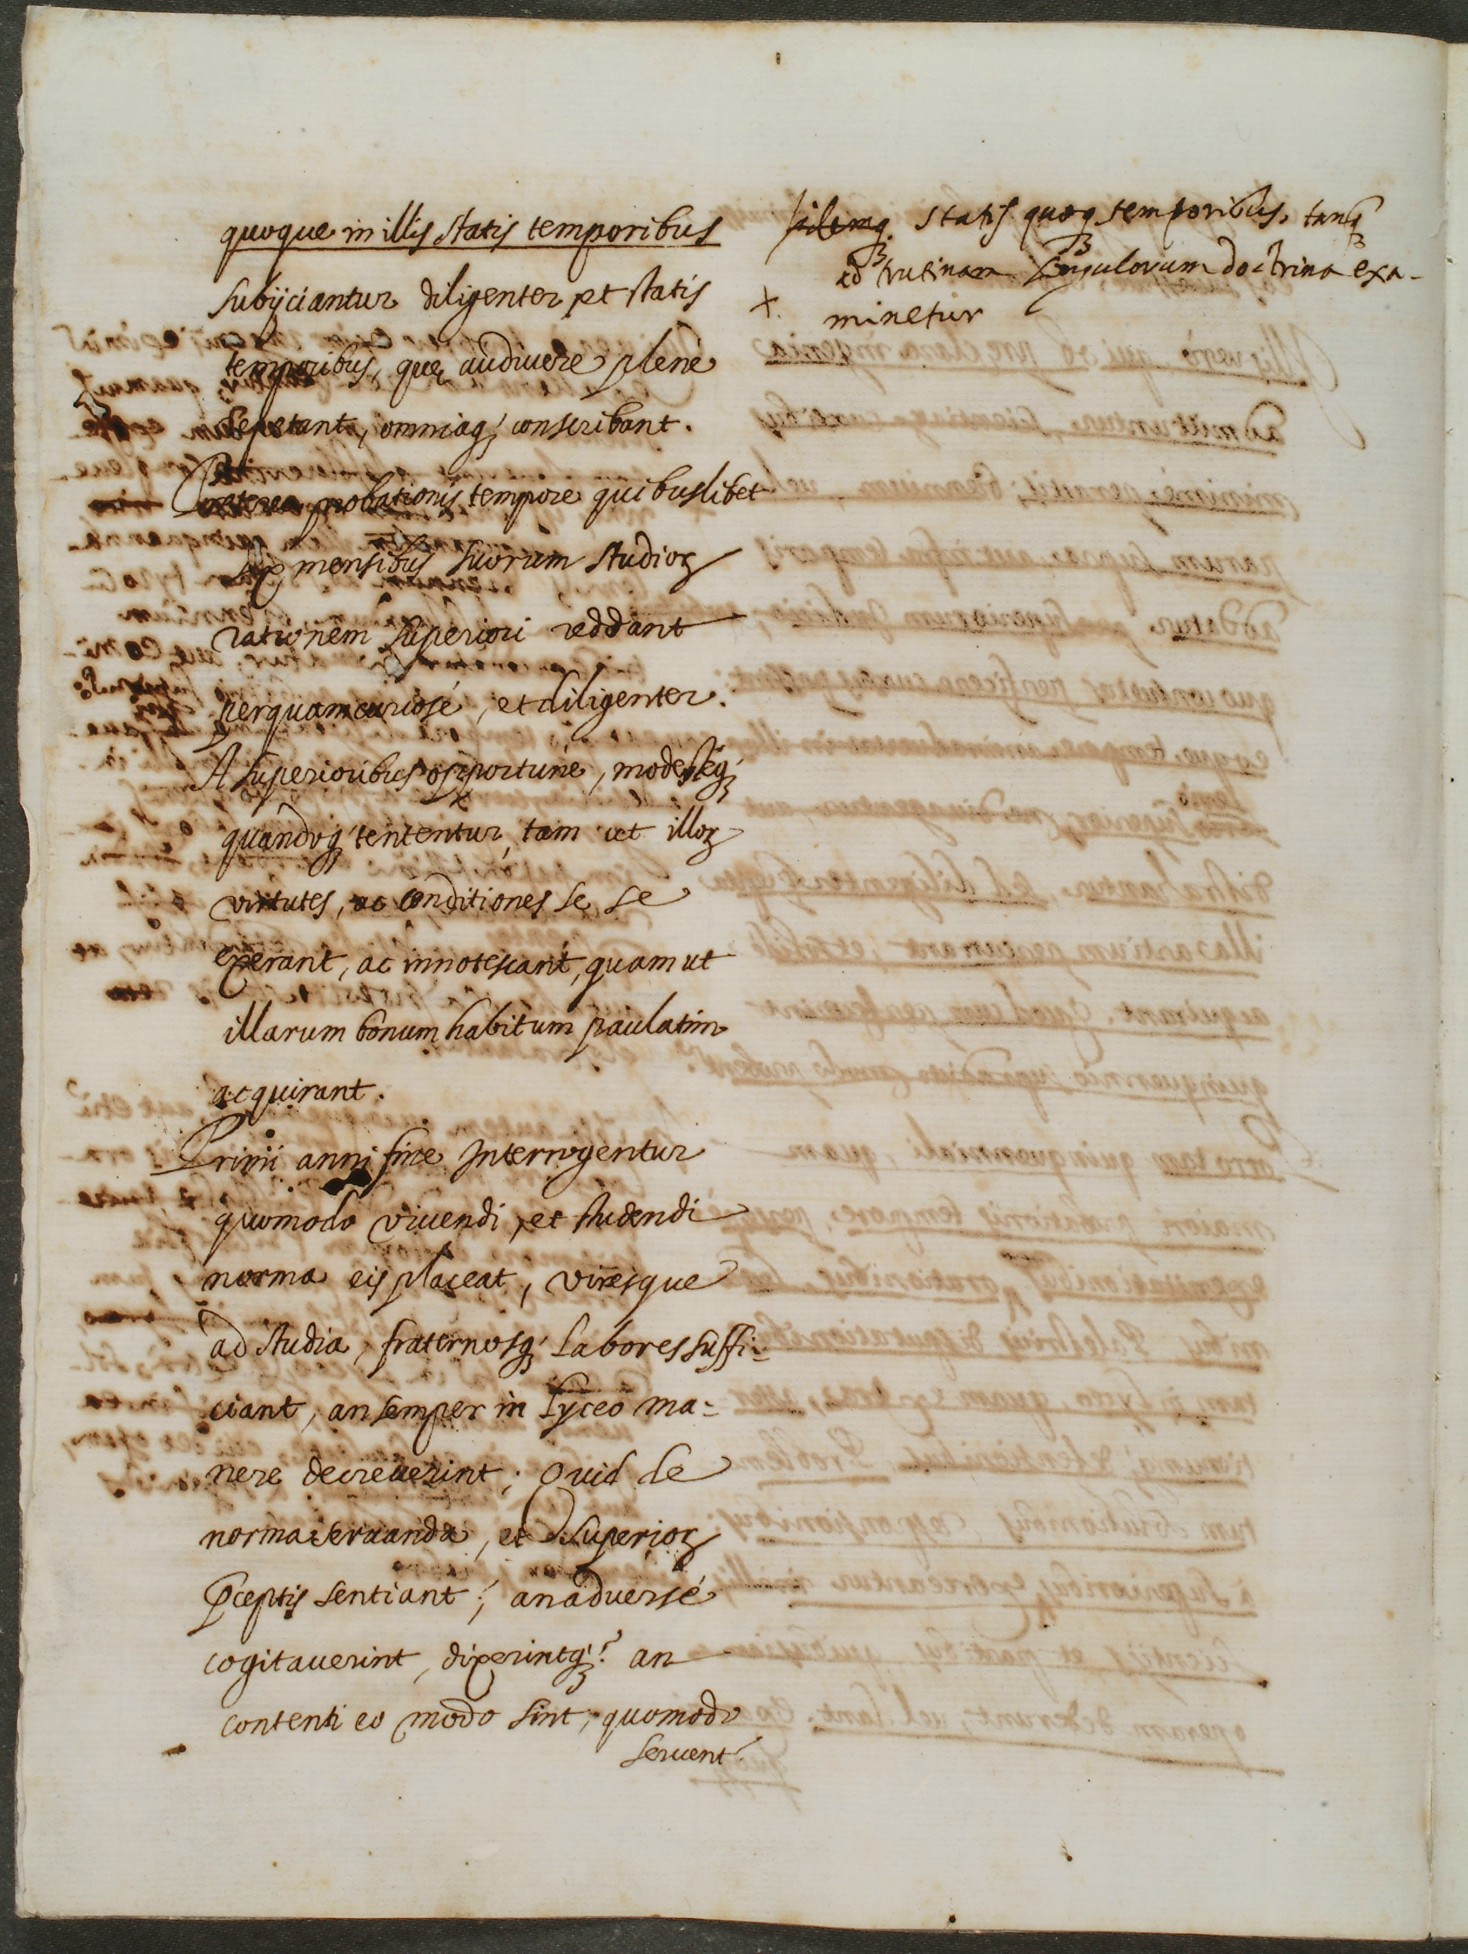 quoque in illis statis temporibus
subijciantur diligenter et statis
temporibus, quę audiuere plenè
repetant, omniaq; conscribant.
Preterea probationis tempore quibuslibet
sex mensibus suorum studioꝝ
rationem superiori reddant
perquam curiosè, et diligenter.
A superioribus opportunè, modestéq;
quandoq; tententur, tam ut illoꝝ
virtutes, ac conditiones se se
exerant, ac innotescant, quam ut
illarum bonum habitum paulatim
acquirant.
Primi anni fine Interrogentur
quomodo viuendi, et studendi
norma eis placeat, viresque
ad studia, fraternosq; labores suffi-
ciant, an semper in Lyceo ma-
nere decreuerint; Quid de
norma seruanda, et Superioꝝ
p̃ceptis sentiant; an aduersè
cogitauerint, dixerintq;? an
contenti eo modo sint; quomodo
seruent
statis quoq temporibus, tanq
ad trutinam singulorum doctrina exa-
x. minetur